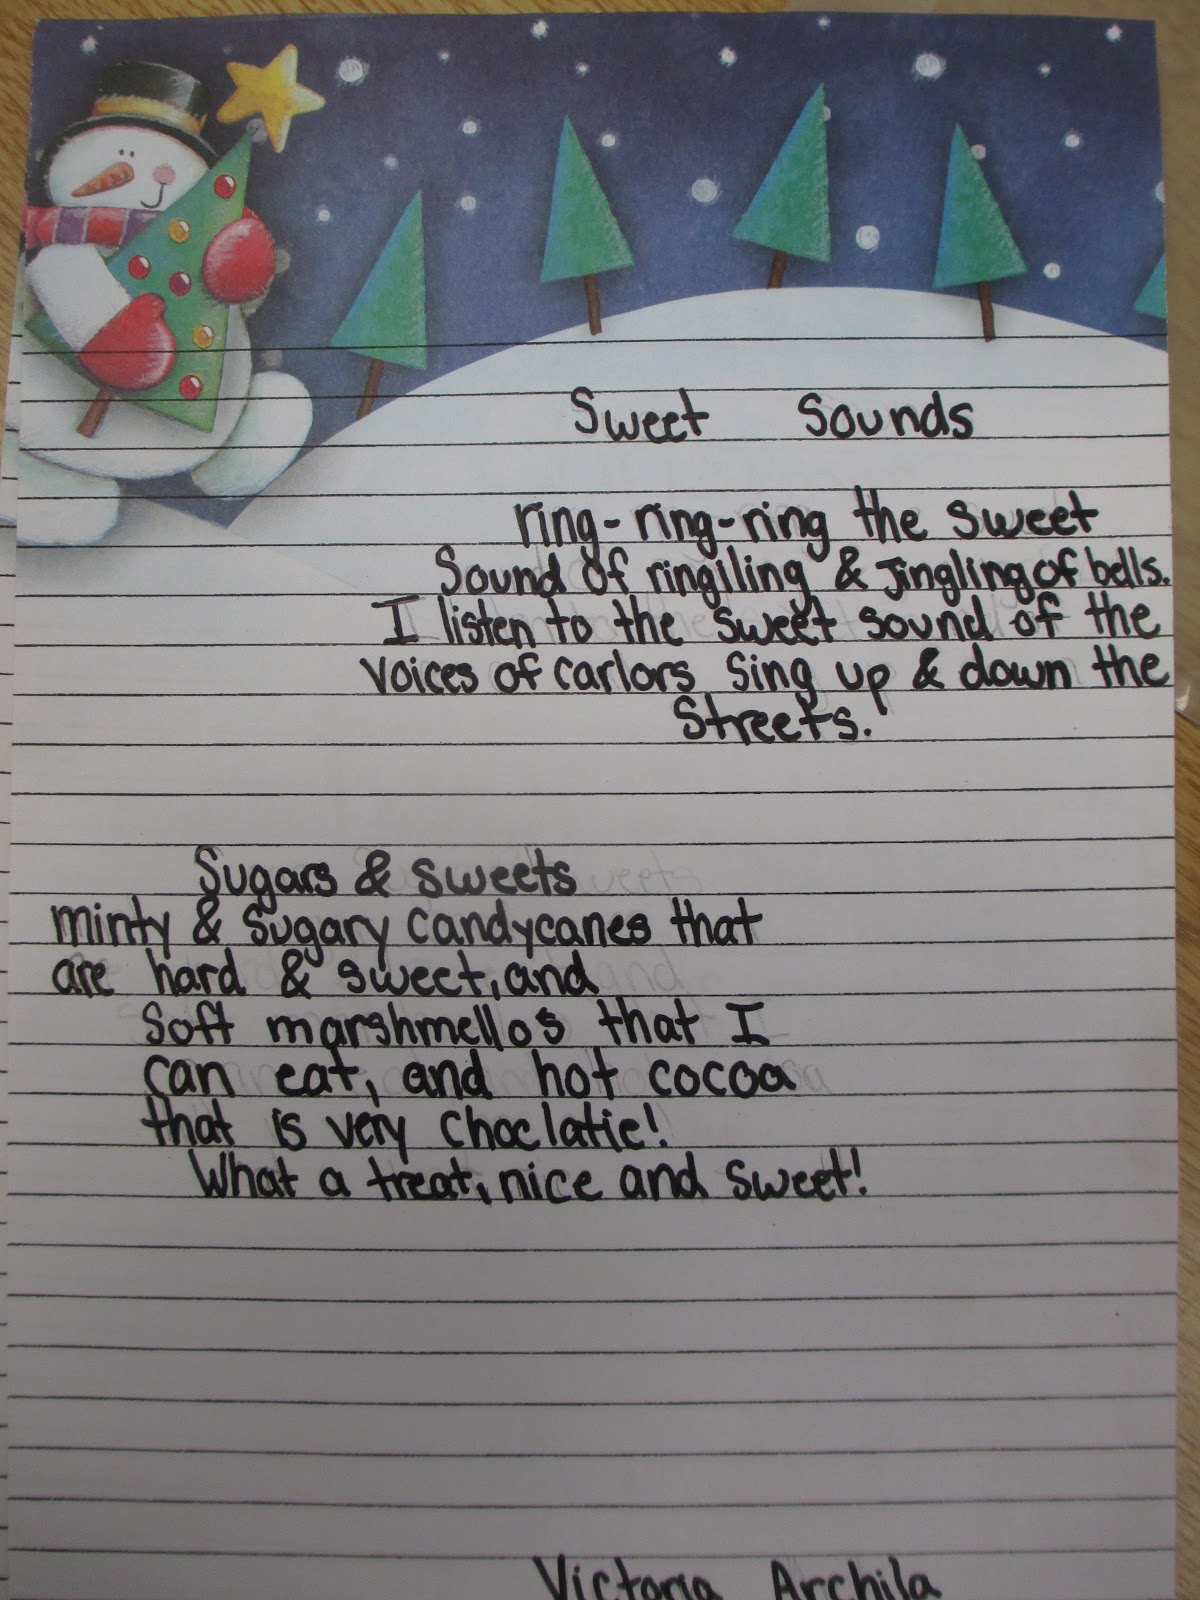 Sweet Sounds
ring-ring-ring the sweet
Sound of ringiling & Jingling of bells.
I listen to the sweet sound of the
voices of carlors sing up & down the
Streets.
Sugars & sweets
minty & sugary candycanes that
are hard & sweet, and
Soft marshmellos that I
can eat, and hot cocoa
that is very choclatie!
What a treat, nice and sweet!
Victoria Archila